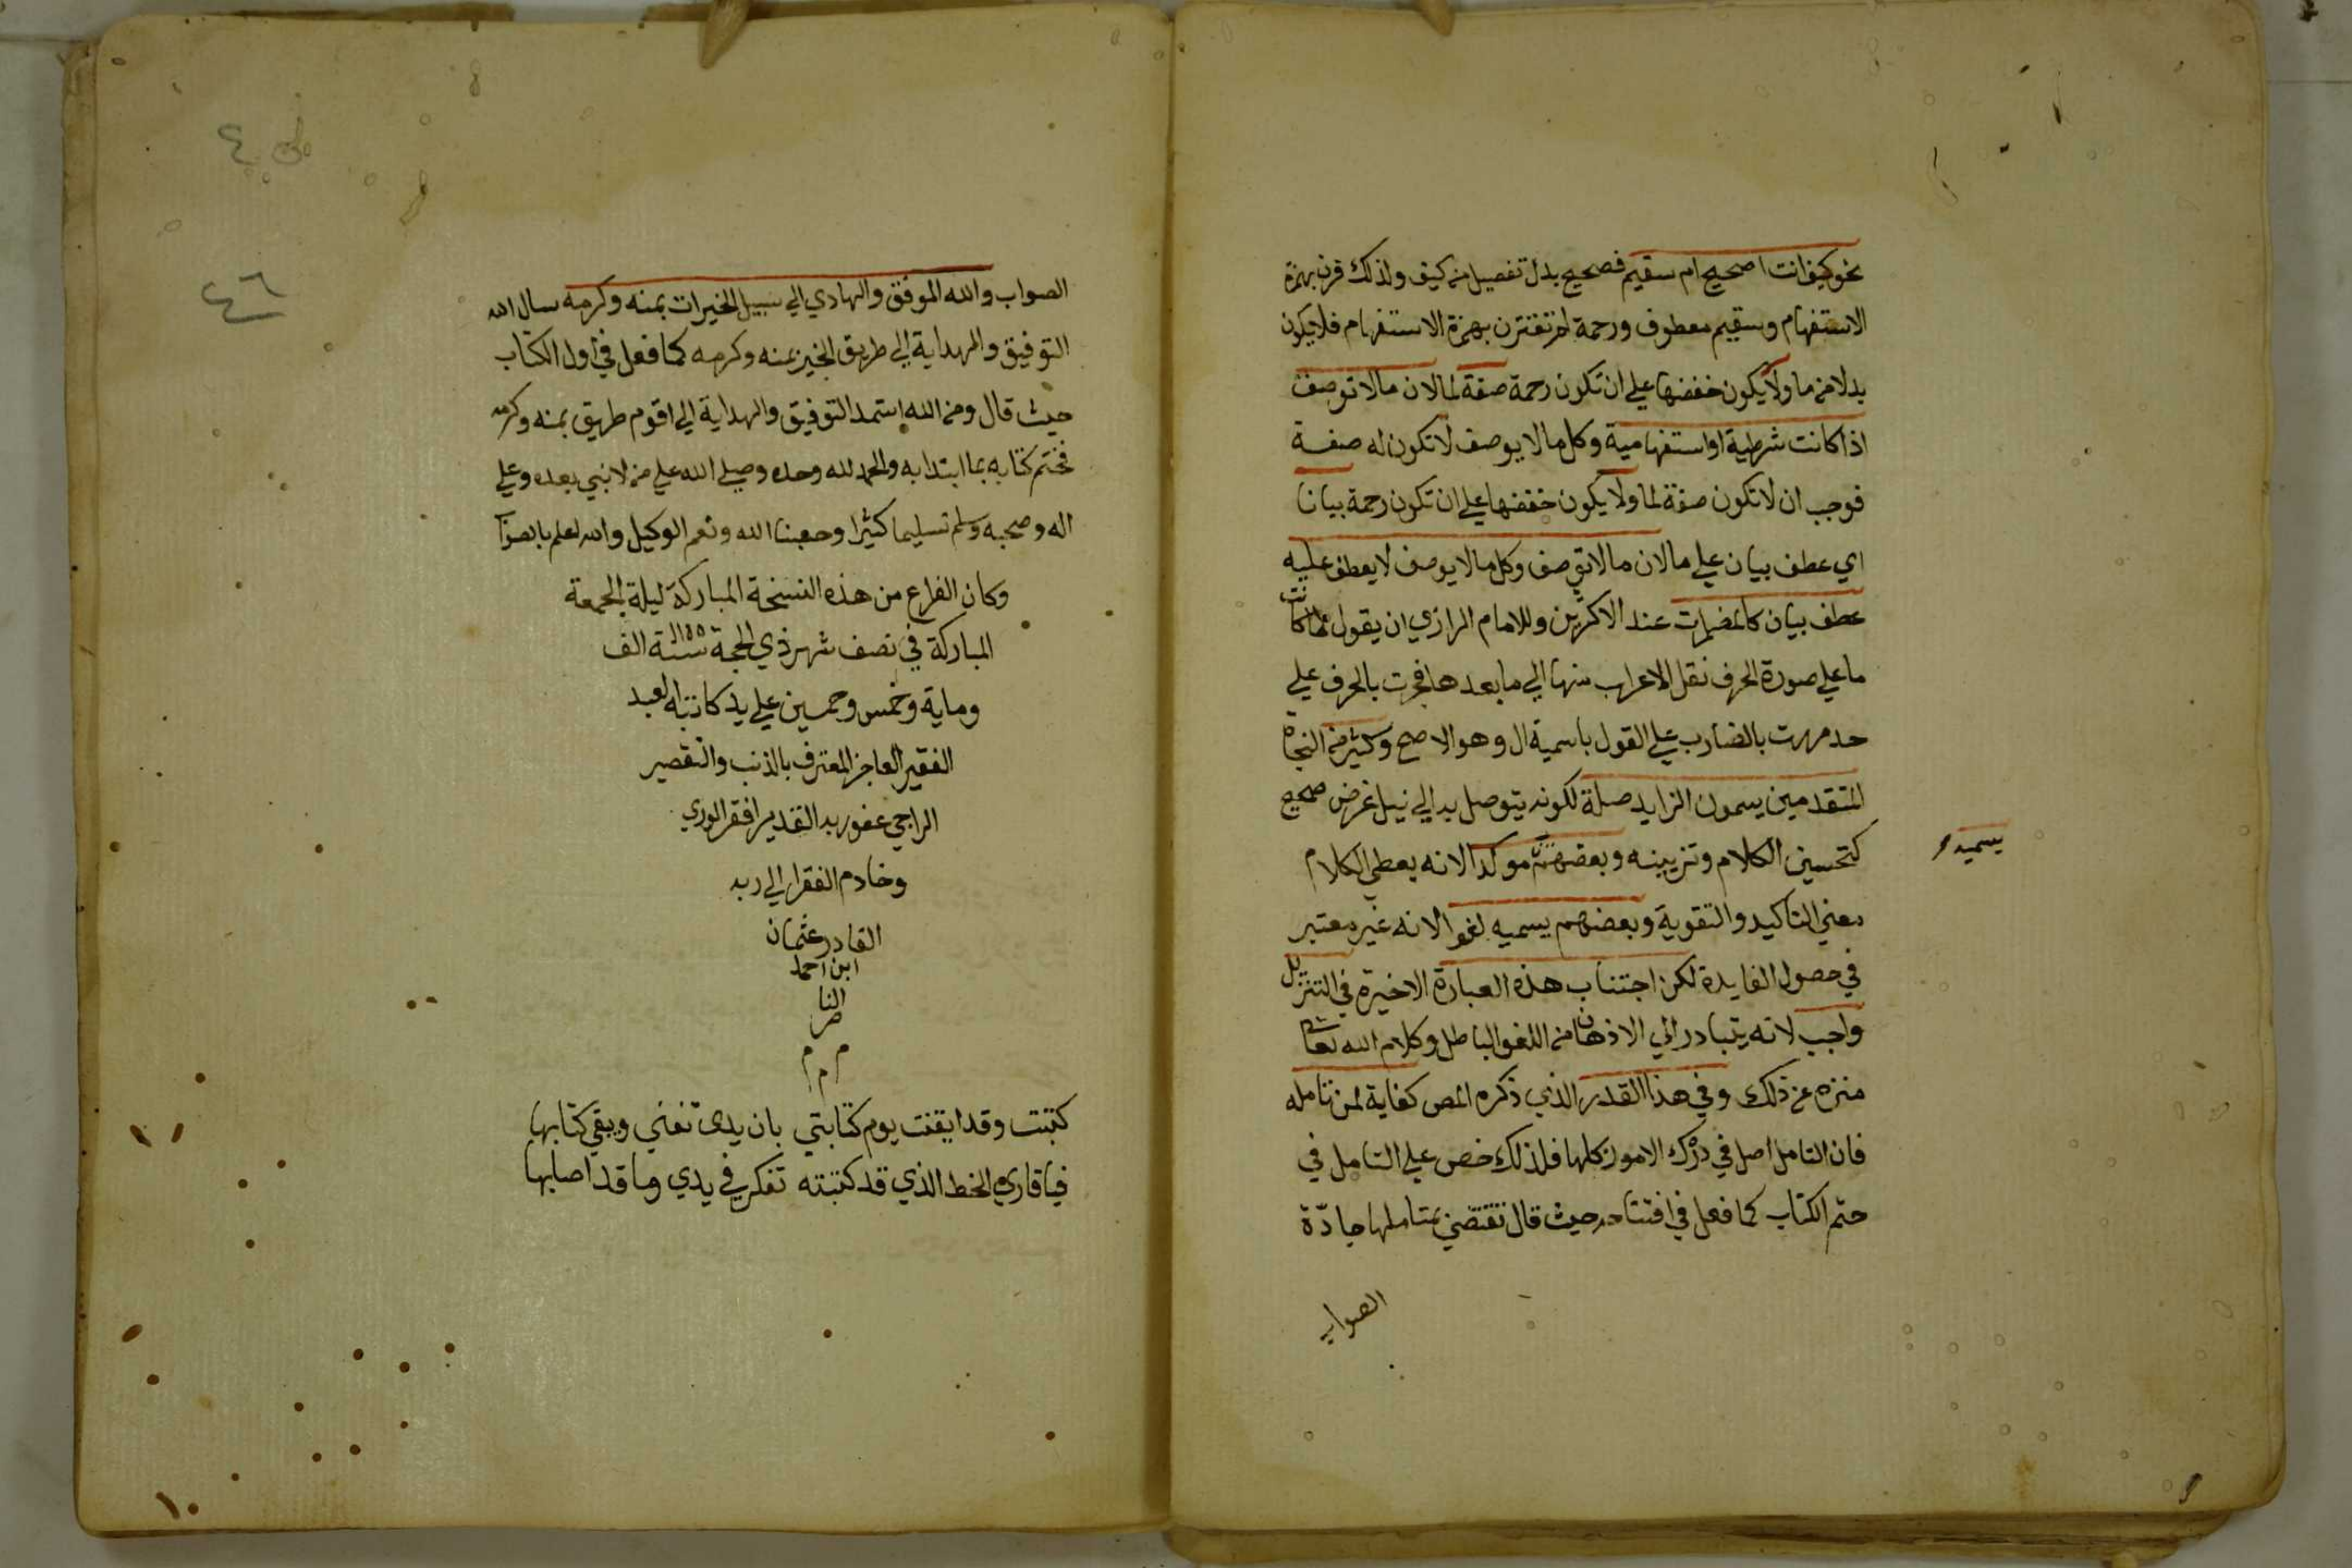 نحو كيف انت اصحيح ام سقيم فصحيح بدل تفصيل من كيف ولذلك قرن بهمزة
الاستفهام وسقيم معطوف ورحمة لم تقترن بهمزة الاستفهام فلا يكون
بدلا من ما ولا يكون خفضها علي ان تكون رحمة صفة لما لان ما لا توصف
اذا كانت شرطية او استفهامية وكل ما لا يوصف لا تكون له صفة
فوجب ان لا تكون صفة لما ولا يكون خفضها علي ان تكون رحمة بيانا
اي عطف بيان علي ما لان ما لا توصف وكل ما لا يوصف لا يعطف عليه
عطف بيان كالمضمرات عند الاكثرين وللامام الرازي ان يقول لما كانت
ما علي صورة الحرف نقل الاعراب منها الي ما بعدها فجرت بالحرف علي
حد مررت بالضارب علي القول باسمية ال وهو الاصح وكثير من النحاة
المتقدمين يسمون الزايد صلة لكونه يتوصل به الي نيل غرض صحيح
كتحسين الكلام وتزيينه وبعضهم مؤكدا لانه يعطي الكلام
يسميه
معني التاكيد والتقوية وبعضهم يسميه لغوا لانه غير معتبر
في حصول الفايدة لكن اجتناب هذه العبارة الاخيرة في التنزيل
واجب لانه يتبادر الي الاذهان من اللغو الباطل وكلام الله تعالي
منزه عن ذلك وفي هذا القدر الذي ذكره المص كفاية لمن تامله
فان التامل اصل في درك الامور كلها فلذلك خص علي التامل في
ختم الكتاب كما فعل في افتتاحه حيث قال تقتضي بمتاملها جادّة
الصواب
٤٦
الصواب والله الموفق والهادي الي سبيل الخيرات بمنه وكرمه سال الله
التوفيق والهداية الي طريق الخير بمنه وكرمه كما فعل في اول الكتاب
حيث قال ومن الله استمد التوفيق والهداية الي اقوم طريق بمنه وكرمه
فختم كتابه بما ابتدا به والحمد لله وحده وصلي الله علي من لا نبي بعده وعلي
اله وصحبه وسلم تسليما كثيرا وحسبنا الله ونعم الوكيل والله اعلم بالصواب
وكان الفراغ من هذه النسخة المباركة ليلة الجمعة
المباركة في نصف شهر ذي الحجة سنة الف
وماية وخمس وخمسين علي يد كاتبه العبد
الفقير العاجز المعترف بالذنب والتقصير
الراجي عفو ربه القدير افقر الوري
وخادم الفقرا الي ربه
القادر عثمان
ابن احمد
النا
صر
م م م
كتبت وقد ايقنت يوم كتابتي بان يدي تفني ويبقي كتابها
فيا قاري الخط الذي قد كتبته تفكر في يدي وما قد اصابها